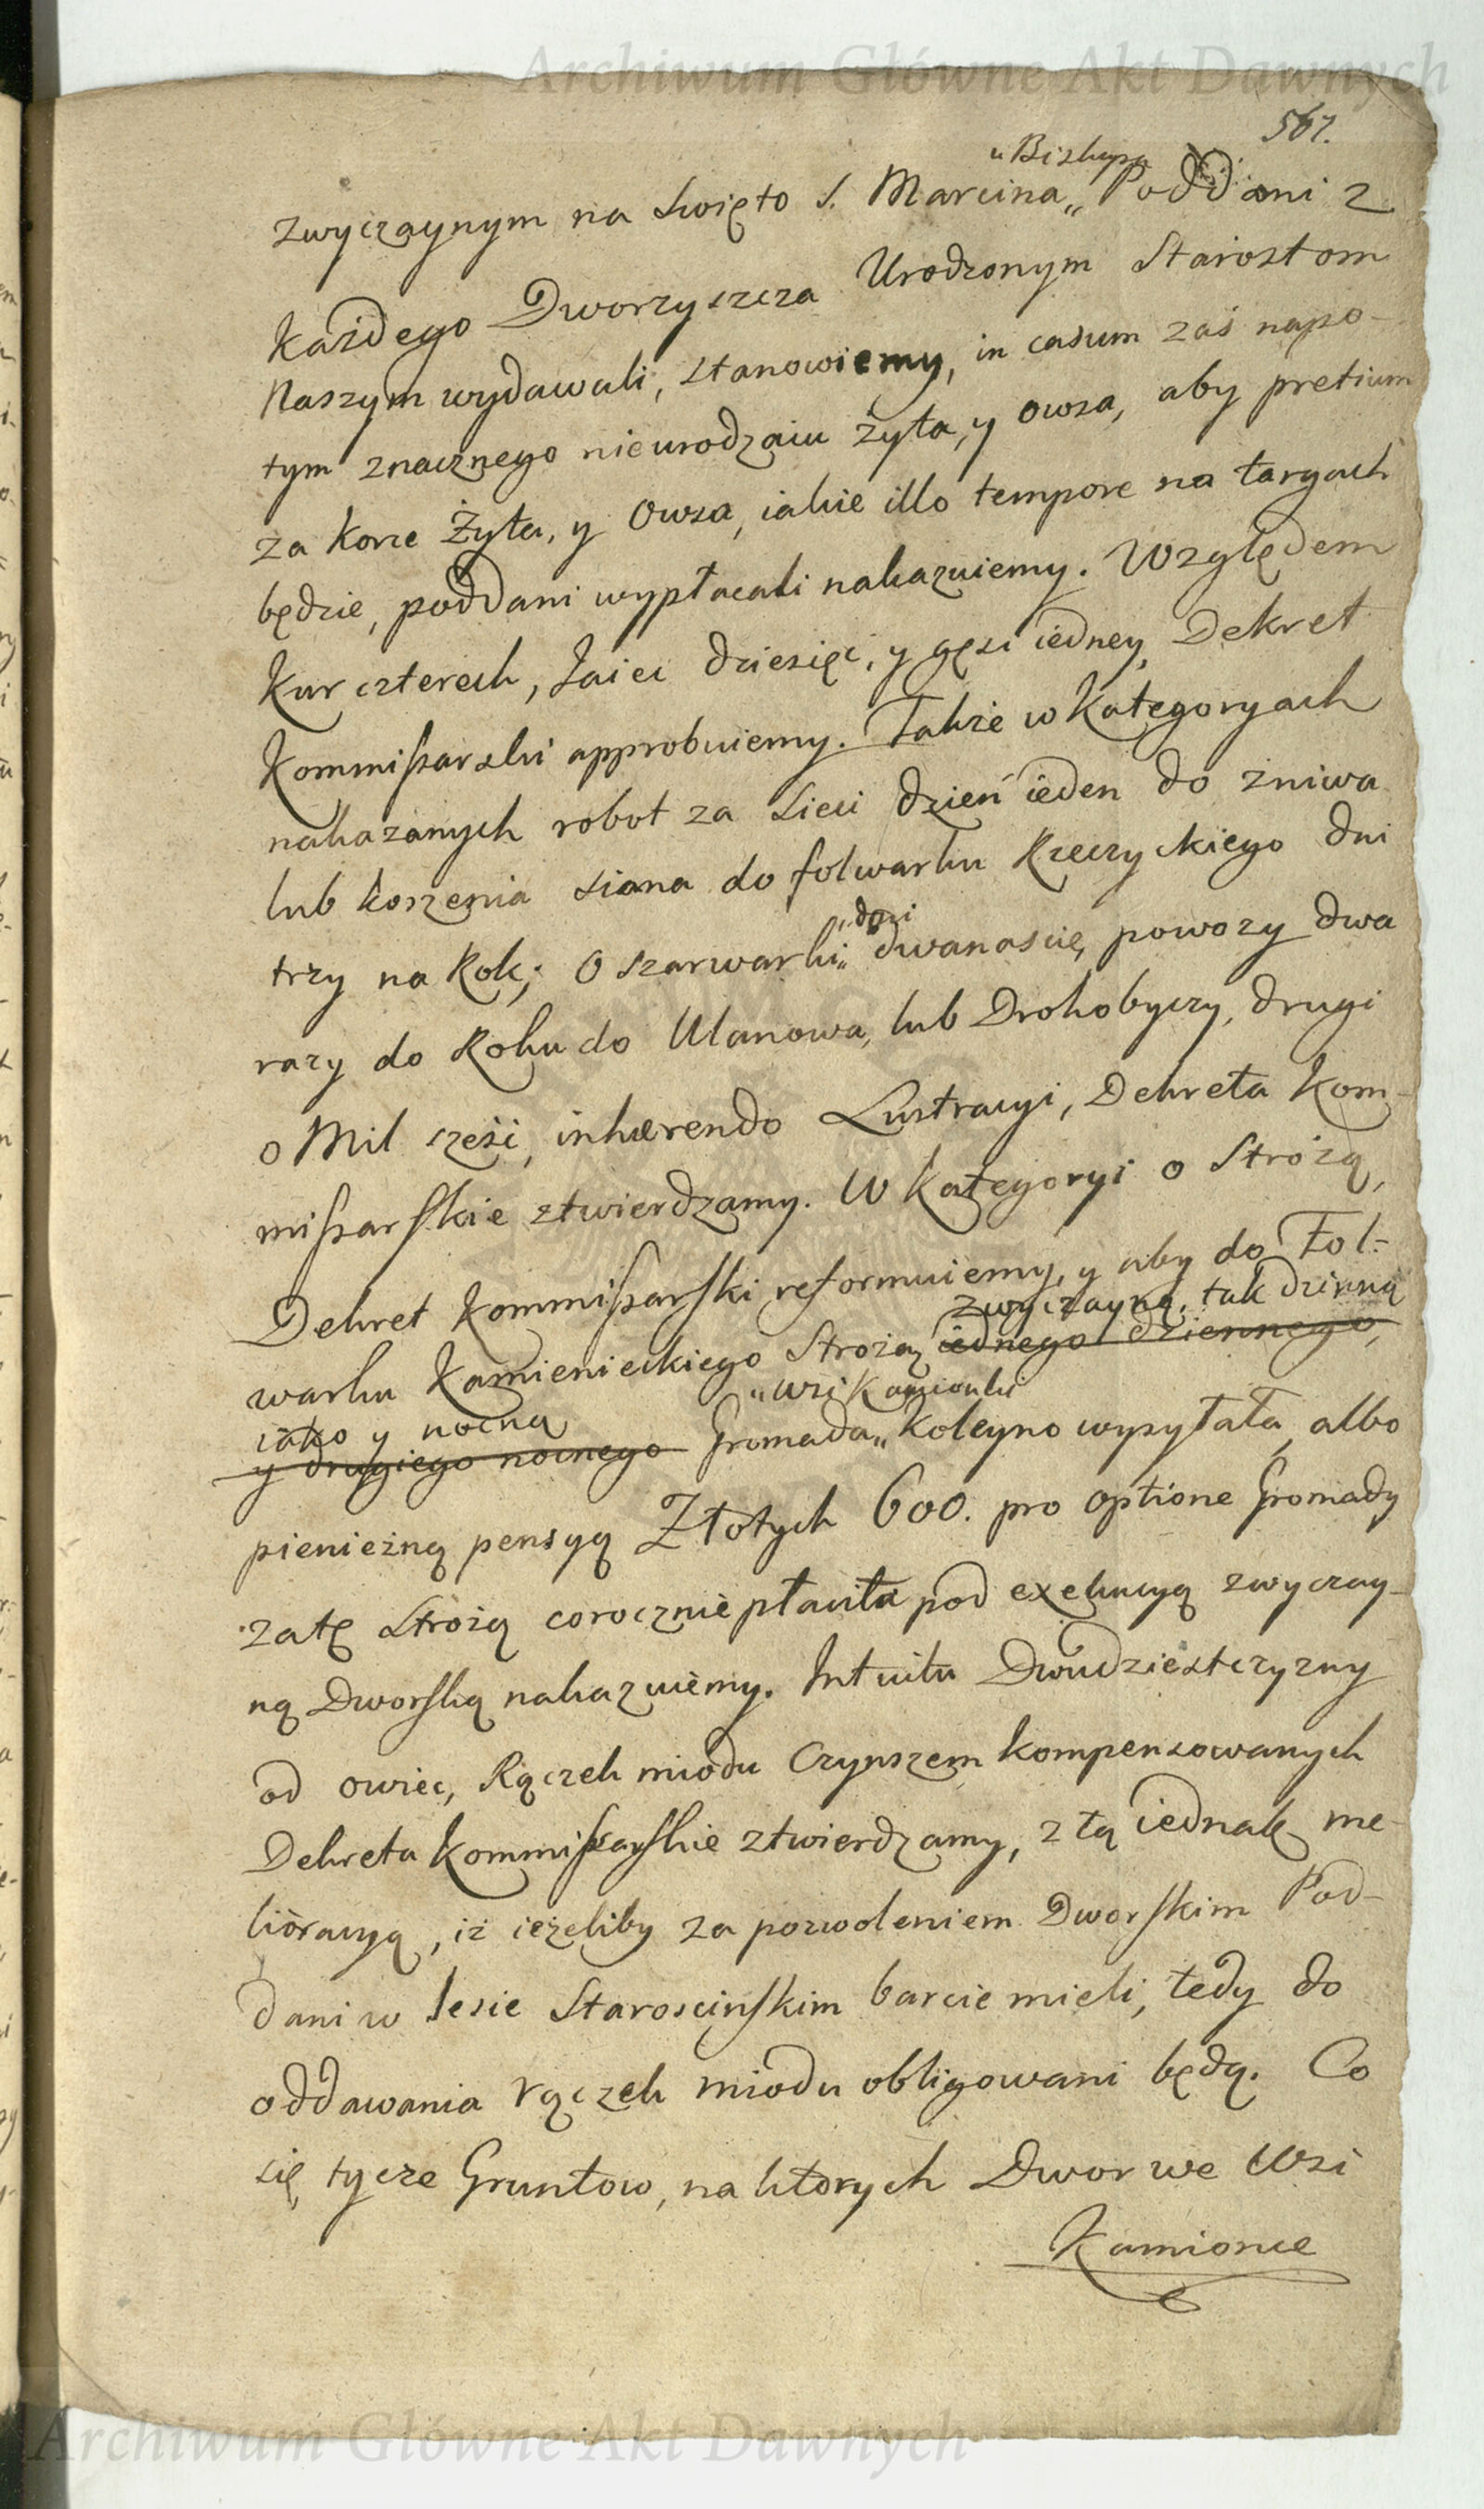 Archiwum Główne Akt Dawnych
567.
„Biskupa
zwyczaynym na swięto S. Marcina„ Poddani z
każdego Dworzyszcza Urodzonym Starostom
Naszym wydawali, stanowiemy, in casum zaś napo-
tym znacznego nieurodzaiu żyta, y owsa, aby pretium
za korce Żyta, y Owsa, iakie illo tempore na targach
będzie, poddani wypłacali nakazuiemy. Względem
Kur czterech, Jaiec dziesięć, y gęsi iedney, Dekret
Kommissarski approbuiemy. Także w Kategoryach
nakazanych robot za Sieci dzień ieden do żniwa
lub koszenia siana do folwarku Rzeczyckiego dni
trzy na Rok; O szarwarki„ „dni dwanascie, powozy dwa
razy do Roku do Ulanowa, lub Drohobyczy, drugi
o Mil sześć, inhærendo Lustracyi, Dekreta Kom-
missarskie ztwierdzamy. W Kategoryi o Strożą,
Dekret Kommissarski reformuiemy, y aby do Fol-
zwyczayną, tak dzinną
warku Kamienieckiego Strożą iednego dziennego,
iako y nocną „wsi Kamionki
y drugiego nocnego Gromada„ koleyno wysyłała, albo
pienieżną pensyą Złotych 600. pro optione Gromady
za tę Strożą corocznie płaciła pod exekucyą zwyczay-
ną Dworską nakazuiemy. Intuitu Dwudziestczyzny
od owiec, Rączek miodu Czynszem kompensowanych
Dekreta Kommissarskie ztwierdzamy, z tą iednak me-
lioracyą, iż ieżeliby za pozwoleniem Dworskim Pod-
dani w lesie Staroscinskim barcie mieli, tedy do
oddawania rączek miodu obligowani będą. Co
się tycze Gruntow, na ktorych Dwor we Wsi
Kamionce
Archiwum Główne Akt Dawnych